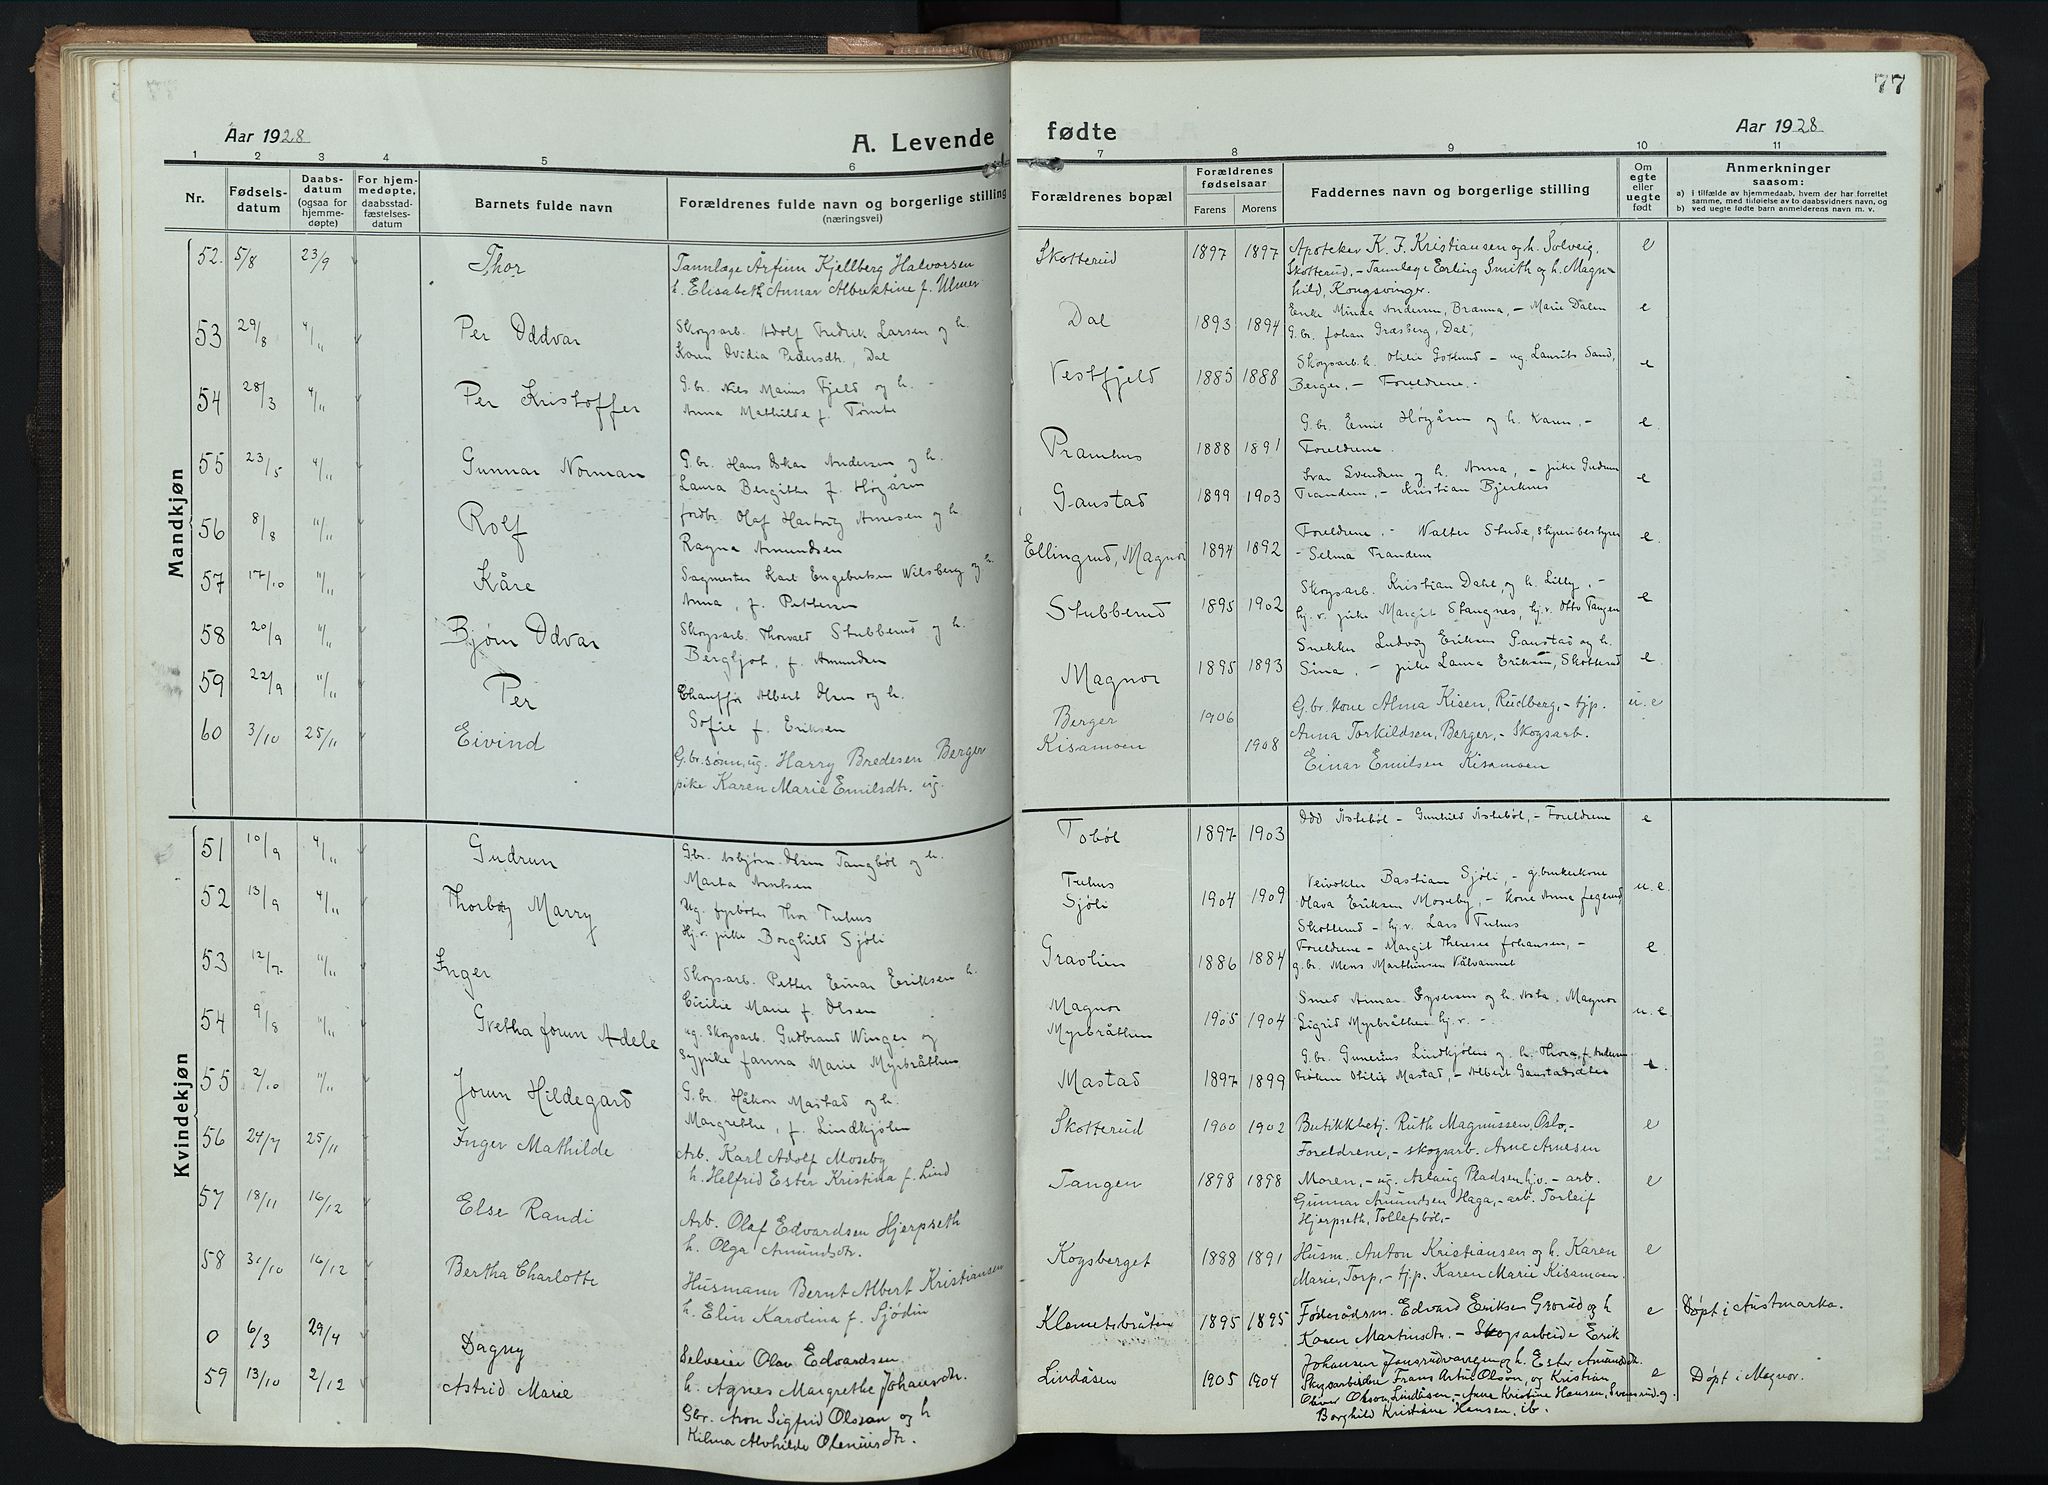 77
Aar 1928
A. Levende fødte
Aar 1928
1 2 3 4 5 6 7 8 9 10 11
Nr.
Fødsels-
datum
Daabs-
datum
(ogsaa for
hjemme-
døpte)
For hjem-
medøpte,
daabsstad-
fæstelses-
datum
Barnets fulde navn
Forældrenes fulde navn og borgerlige stilling
(næringsvei)
Forældrenes bopæl
Forældrenes
fødselsaar
Farens Morens
Faddernes navn og borgerlige stilling
Om
egte
eller
uegte
født
Anmerkninger
saasom:
a) i tilfælde av hjemmedaab, hvem der har forrettet
samme, med tilføielse av to daabsvidners navn, og
b) ved uegte fødte barn anmelderens navn m. v.
Mandkjøn
52. 5/8 23/9 Thor
Tannlæge Arfinn Kjellberg Halvorsen
h. Elisabeth Annar Albrektine f. Ulmer
Skotterud 1897 1897
Apoteker K. F. Kristiansen og h. Solveig,
Skotterud, - Tannlæge Erling Smith og h. Magn-
hild, Kongsvinger.
e
53 29/8 4/11 Per Oddvar
Skogsarb. Adolf Fredrik Larsen og h.
Karen Ovidia Pedersdtr., Dal
Dal 1893 1894
Enke Minda Andersen, Branna, - Marie Dalen
G.br. Johan Græsberg, Dal,
e
54 28/3 4/11 Per Kristoffer
G.br. Nils Marius Fjeld og h. -
Anna Mathilde f. Tømte
Vestfjeld 1885 1888
Skogsarb.h. Otilie Gotlund - ug. Laurits Sand,
Berger, - Foreldrene. -
e
55 23/5 4/11 Gunnar Norman
G.br. Hans Oskar Andersen og h.
Laura Bergitte f. Høgåsen
Pramhus 1888 1891
G.br. Emil Høgåsen og h. Karen, -
Foreldrene.
e.
56 8/8 11/11 Rolf
Jordbr. Olaf Hartvig Arnesen og h.
Ragna Amundsen
Gaustad 1899 1903
Ivar Svendsen og h. Anna, - pike Gudrun
Trandem, - Kristian Bjerknes
e
57 17/10 11/11 Kåre
Sagmester Karl Engebretsen Wilsberg og h.
Anna, f. Pettersen
Ellingrud, Magnor 1894 1892
Foreldrene. Walter Stude, styreribestyrer
- Selma Trandem
e.
58 20/9 11/11 Bjørn Odvar
Skogsarb. Thorvald Stubberud og h.
Bergljot, f. Amundsen
Stubberud 1895 1902
Skogsarb. Kristian Dahl, og h. Lilly, -
hj.v. pike Margit Stangnes, hj.v. Otto Tangen
e
59 22/9 11/11 Per
Chauffør Albert Olsen og h.
Sofie f. Eriksen
Magnor 1895 1893
Snekker Ludvig Eriksen Gaustad og h.
Sina, - pike Laura Eriksen, Skotterud
e.
60 3/10 25/11 Eivind
G.br.sønn, ug. Harry Bredesen Berger
pike Karen Marie Emilsdtr. ug.
Berger 1906
Kisamoen 1908
G.br. kone Alma Kisen, Rudberg, - tjp.
Anna Torkildsen, Berger, - Skogsarb.
Einar Emilsen Kisamoen
u. e
Kvindekjøn
51 10/9 4/11 Gudrun
G.br. Asbjørn Olsen Tangbøl og h.
Marta Arntsen
Tobøl 1897 1903
Odd Åstebøl - Gunhild Åstebøl, - Foreldrene
e
52 13/9 4/11 Thorbjørg Marry
Ug. fyrbøter Thor Tuhus
Hj.v. pike Borghild Sjøli
Tuhus
Sjøli 1904 1909
Veivokter Bastian Sjøli, - g.brukerkone
Olava Eriksen Moseby, - kone Anna
Skotterud - hj.v. Lars Tuhus
u. e.
53 12/7 11/11 Inger
Skogsarb. Petter Einar Eriksen h.
Cicilie Marie f. Olsen
Graslien 1886 1884
Foreldrene - Margit Therese Johansen, -
g.br. Mens Marthinsen Vålvannet
e
54 9/8 11/11 Gretha Jorun Adele
ug. Skogsarb. Gudbrand Winger og
Sypike Janna Marie Myrbråthen
Magnor
Myrbråthen 1905 1904
Smed Annar Syversen og h. Asta, Magnor
Sigrid Myrbråthen hj.v. -
u. e
55 2/10 11/11 Jorun Hildegard
G.br. Håkon Mastad og h.
Margrethe, f. Lindkjølen
Mastad 1897 1899
G.br. Gunerius Lindkjølen og h. Thora,
Frøken Otilie Mastad, - Albert Gaustadsæter
e.
56 24/7 25/11 Inger Mathilde
Arb. Karl Adolf Moseby
h. Helfrid Ester Kristina f. Lind
Skotterud 1900 1902
Butikkbetj. Ruth Magnussen, Oslo, -
Foreldrene, - skogsarb. Arne Arnesen
e
57 18/11 16/12 Else Randi
Arb. Olaf Edvardsen Hjerpseth
h. Olga Amundsdtr.
Tangen 1898 1898
Moren, - ug. Aslaug Pladsen hj.v. - arb.
Gunnar Amundsen Haga, - arb. Torleif
Hjerpseth, Tollefsbøl, -
e
58 31/10 16/12 Bertha Charlotte
Husmann Bernt Albert Kristiansen
h. Elin Karolina f. Sjödin
Kogsberget 1888 1891
Husm. Anton Kristiansen og h. Karen
Marie, Torp, - tj.p. Karen Marie Kisamoen.
e
0 6/3 29/4 Dagny
Selveier Olav Edvardsen
h. Agnes Margrethe Johansdtr.
Klemetsbråten 1895 1895
Føderådsm. Edvard Eriksen Grorud og h
Karen Martinsdtr. - Skogsarbeide Erik
Johansen Jansrudvangen og h. Ester Amundsdtr.
e
Døpt i Austmarka.
59 13/10 2/12 Astrid Marie
Gbr. Aron Sigfrid Olsson og h
Hilma Alvhilde Oleniusdtr.
Lindåsen 1905 1904
Skogsarbeider Frans Artur Olson, og Kristian
Oliver Olsson, Lindåsen - Anne Kristine Hansen, Svensrud. g.
Borghild Kristiane Hansen, ib.
e
Døpt i Magnor.